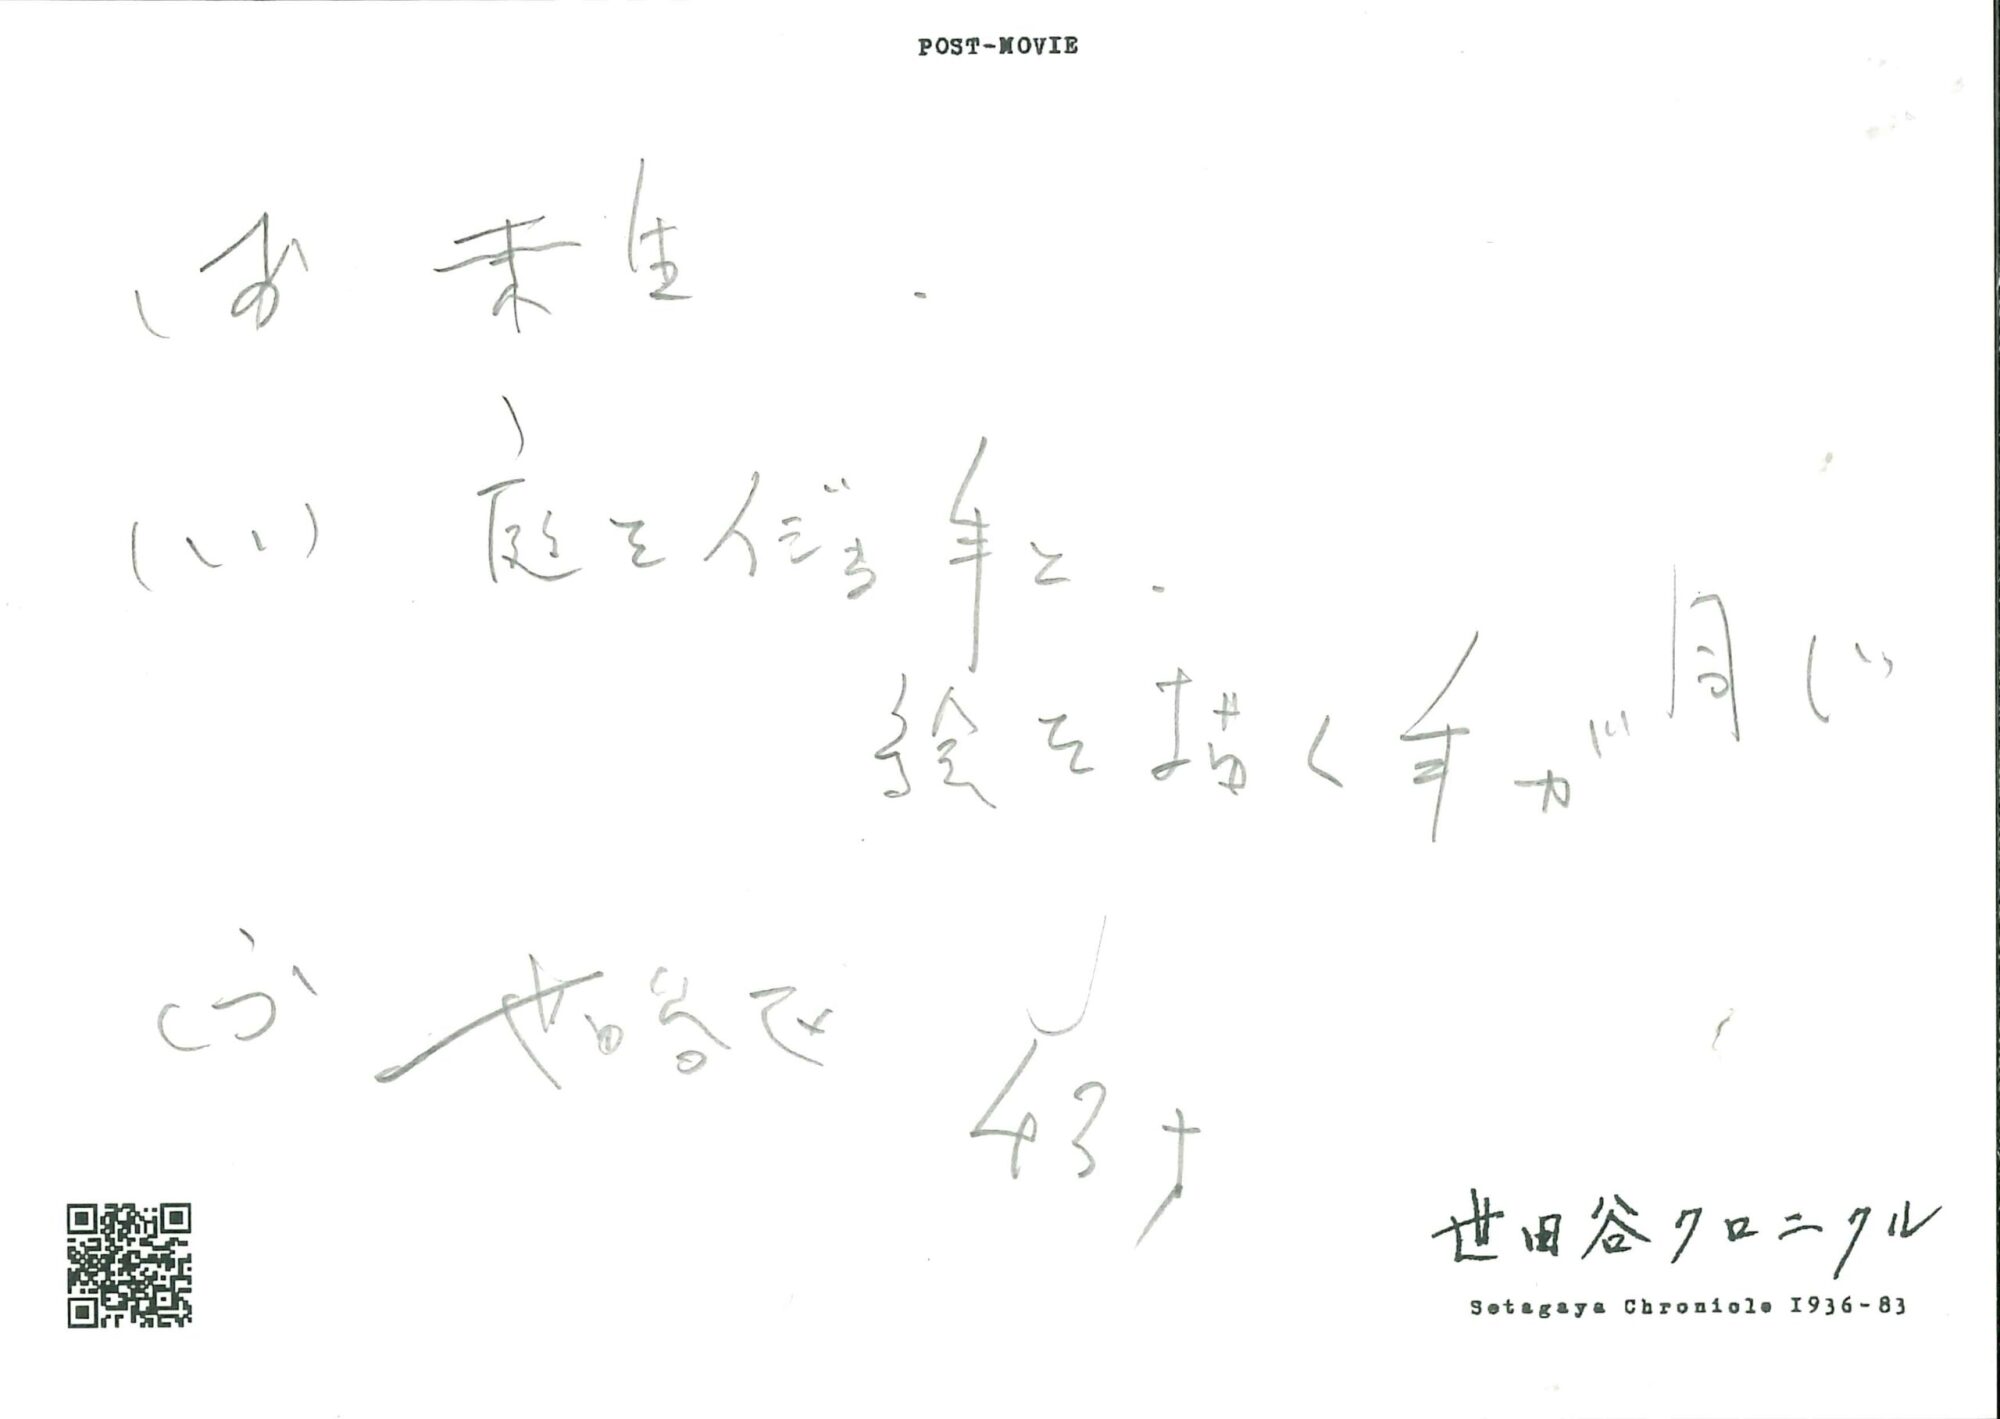 POST-MOVIE
(あ) 未生
(い) 庭を作る手と
絵を描く手が同じ
(う) 世田谷で
43才
世田谷クロニクル
Setagaya Chronicle 1936-83